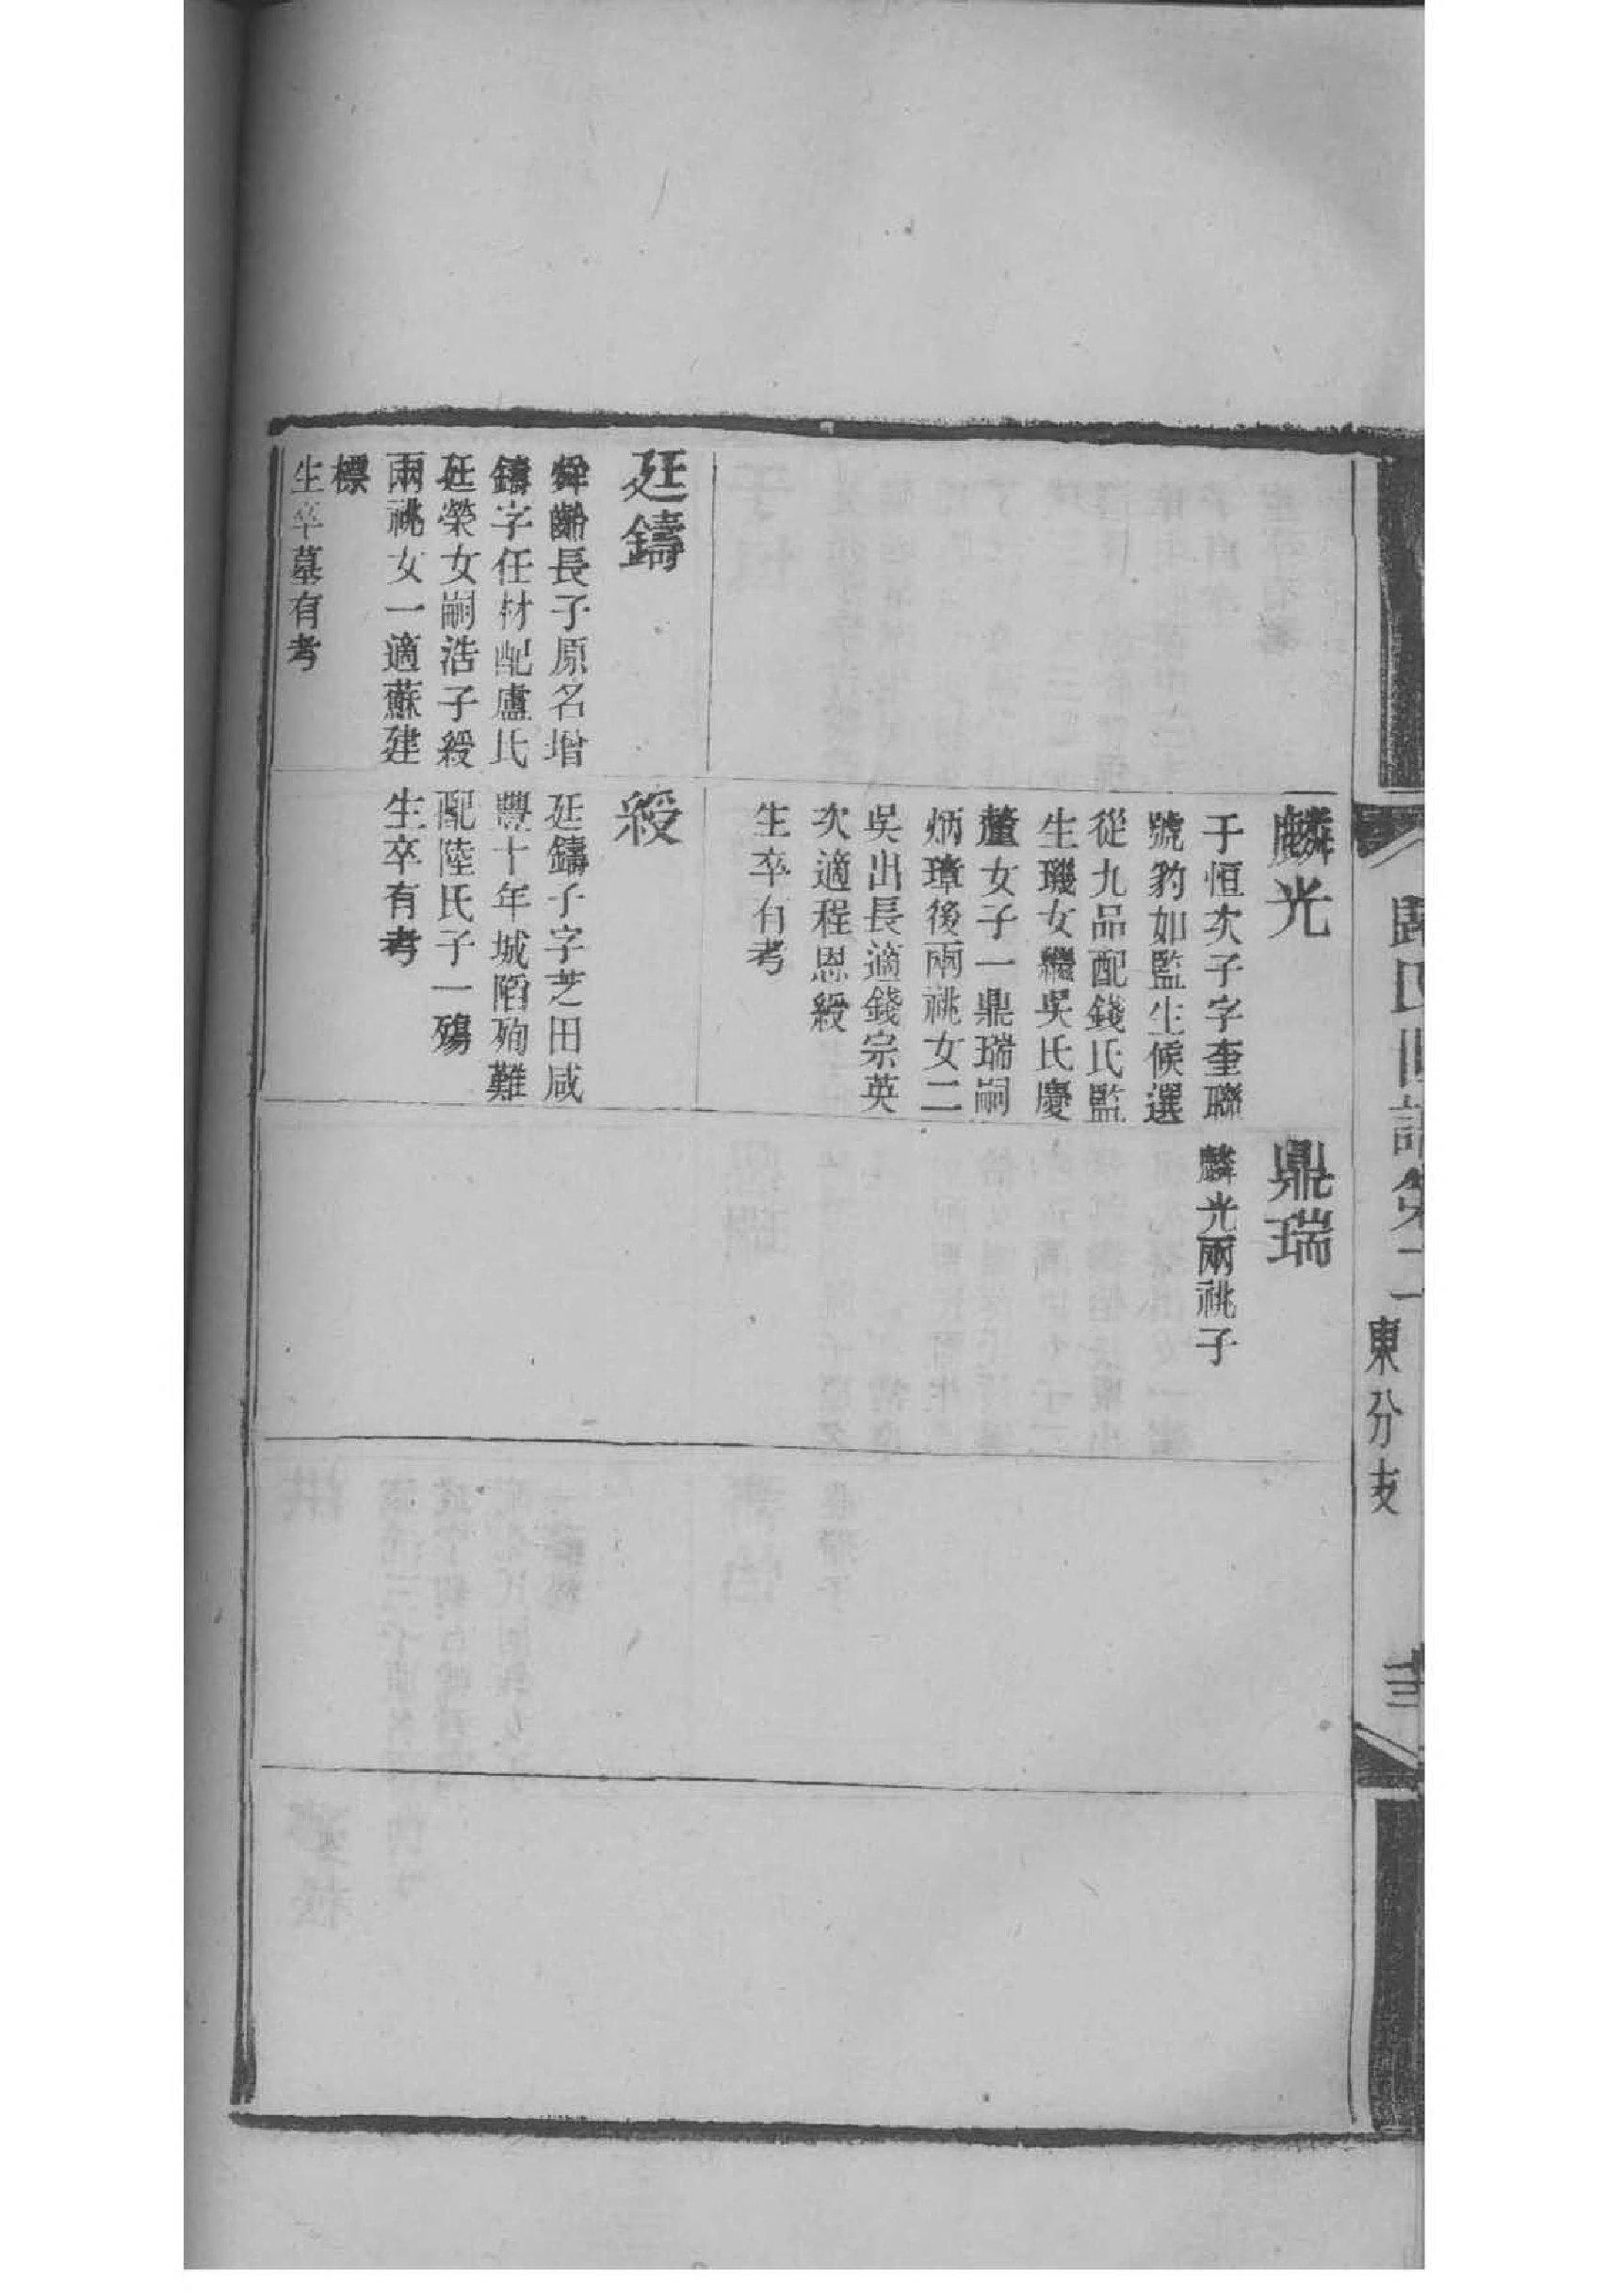 麟光
于恒次子字奎聯
號豹如監生候選
從九品配錢氏監
生璣女繼吳氏慶
釐女子一鼎瑞嗣
炳璋後兩祧女二
吳出長適錢宗英
次適程恩綬
生卒有考
鼎瑞
麟光兩祧子
廷鑄
錚齡長子原名增
鑄字任材配盧氏
廷榮女嗣浩子綬
兩祧女一適蘇建
標
生卒墓有考
綬
廷鑄子字芝田咸
豐十年城陷殉難
配陸氏子一殤
生卒有考
東分支